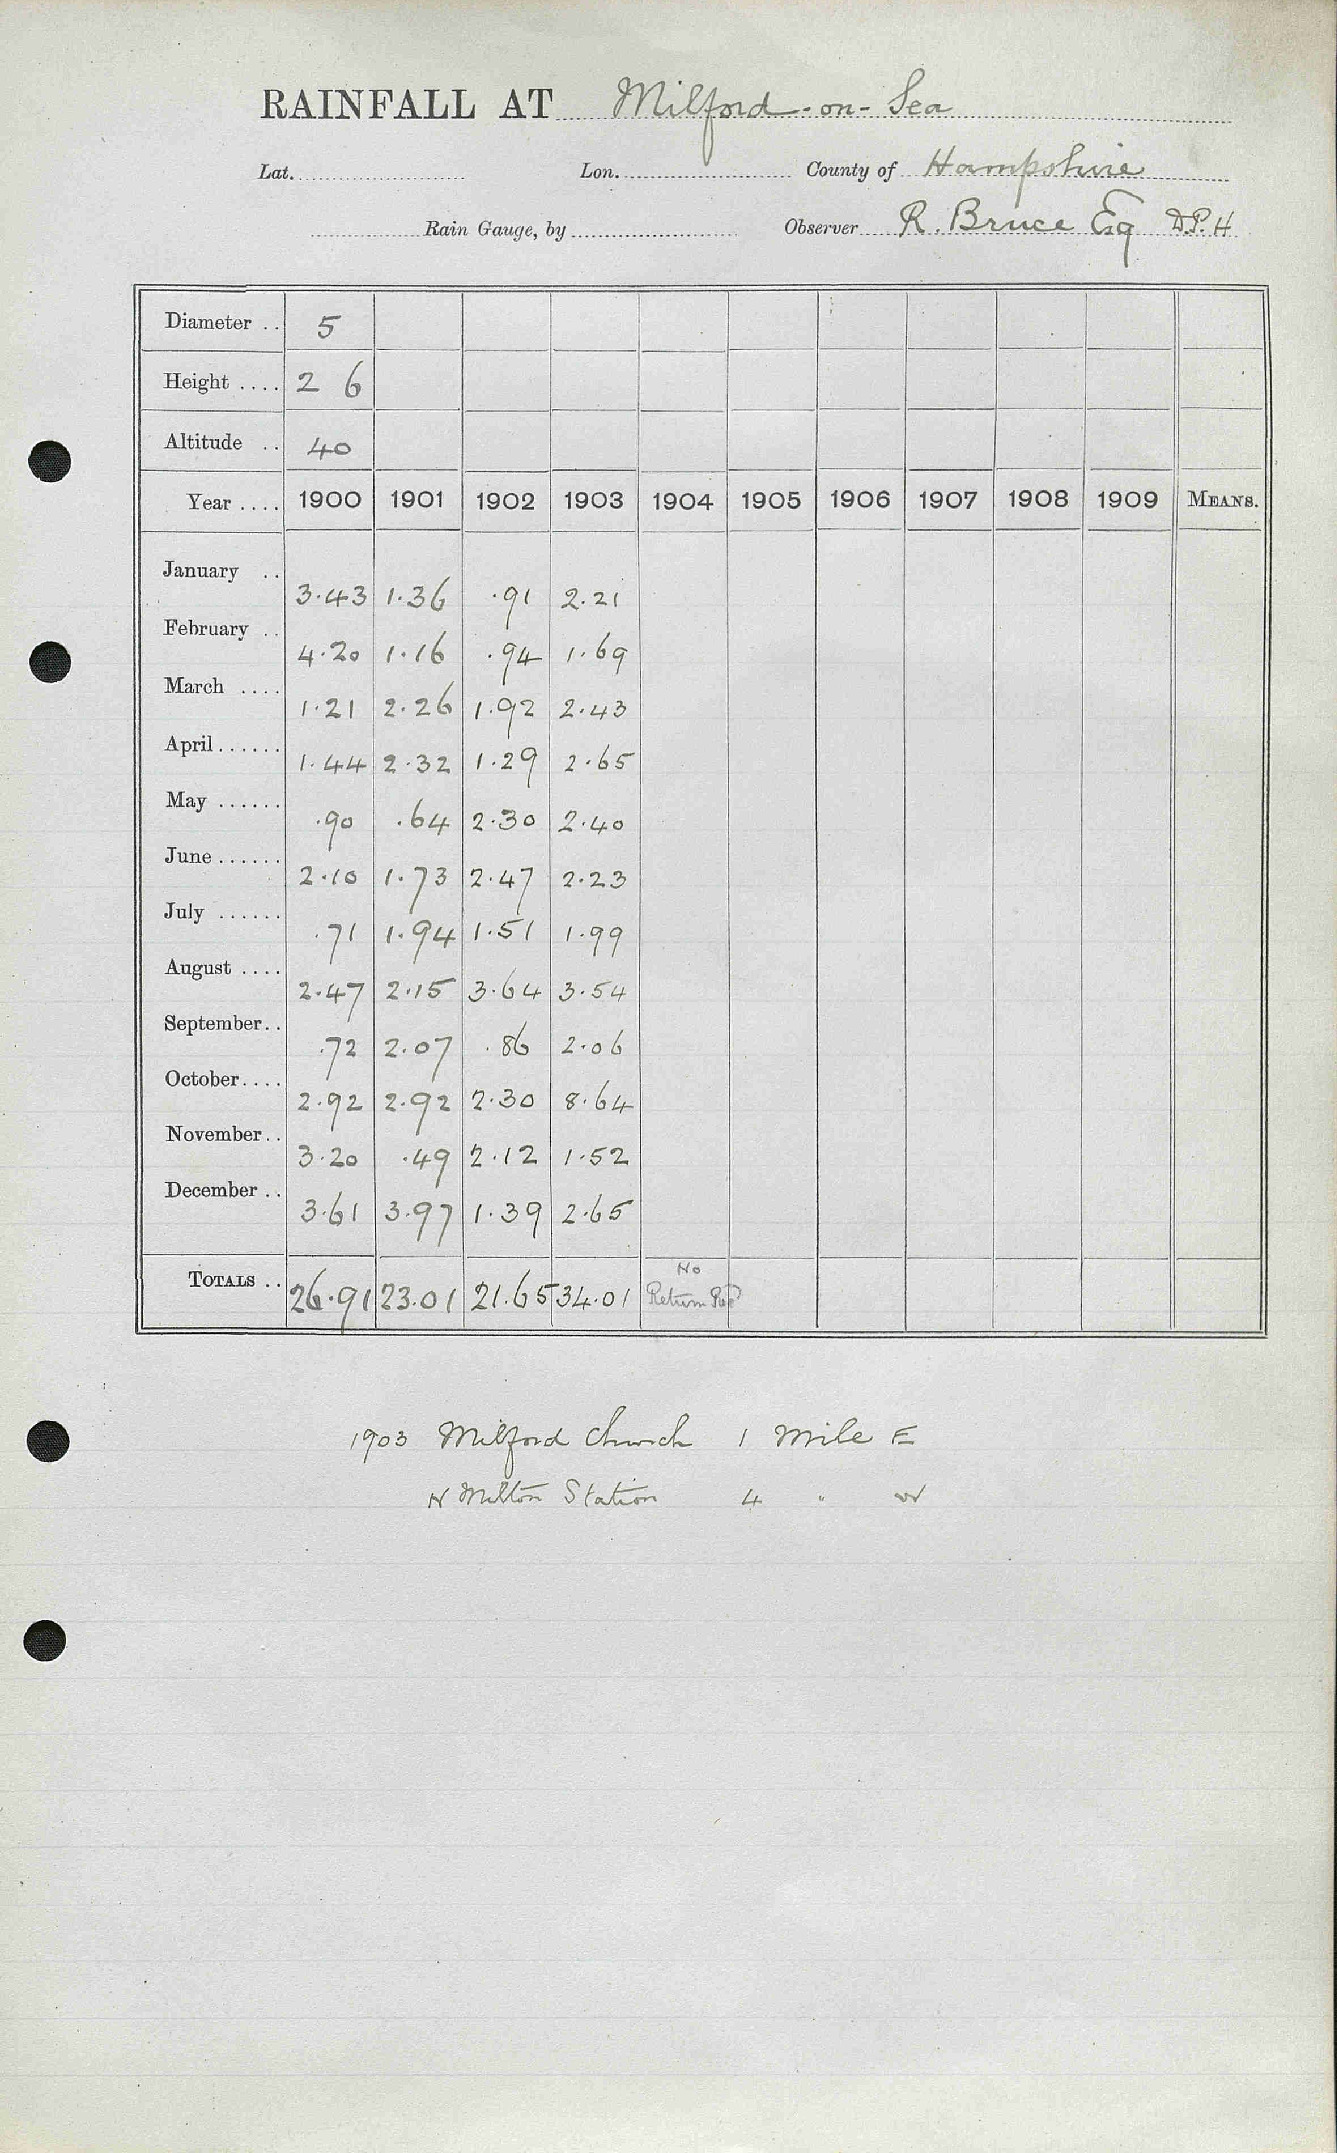 RAINFALL AT Milford-on-Sea
Lat. Lon. County of Hampshire
Rain Gauge, by Observer R. Bruce Esq D.P.H
Diameter .. 5
Height .... 2 6
Altitude .. 40
Year .... 1900 1901 1902 1903 1904 1905 1906 1907 1908 1909 MEANS.
January .. 3.43 1.36 .91 2.21
February .. 4.20 1.16 .94 1.69
March .... 1.21 2.26 1.92 2.43
April ...... 1.44 2.32 1.29 2.65
May ...... .90 .64 2.30 2.40
June ...... 2.10 1.73 2.47 2.23
July ...... .71 1.94 1.51 1.99
August .... 2.47 2.15 3.64 3.54
September.. .72 2.07 .86 2.06
October.... 2.92 2.92 2.30 8.64
November.. 3.20 .49 2.12 1.52
December .. 3.61 3.97 1.39 2.65
No
TOTALS .. 26.91 23.01 21.65 34.01 Return
1903 Milford Church 1 Mile E
N Milton Station 4 " W